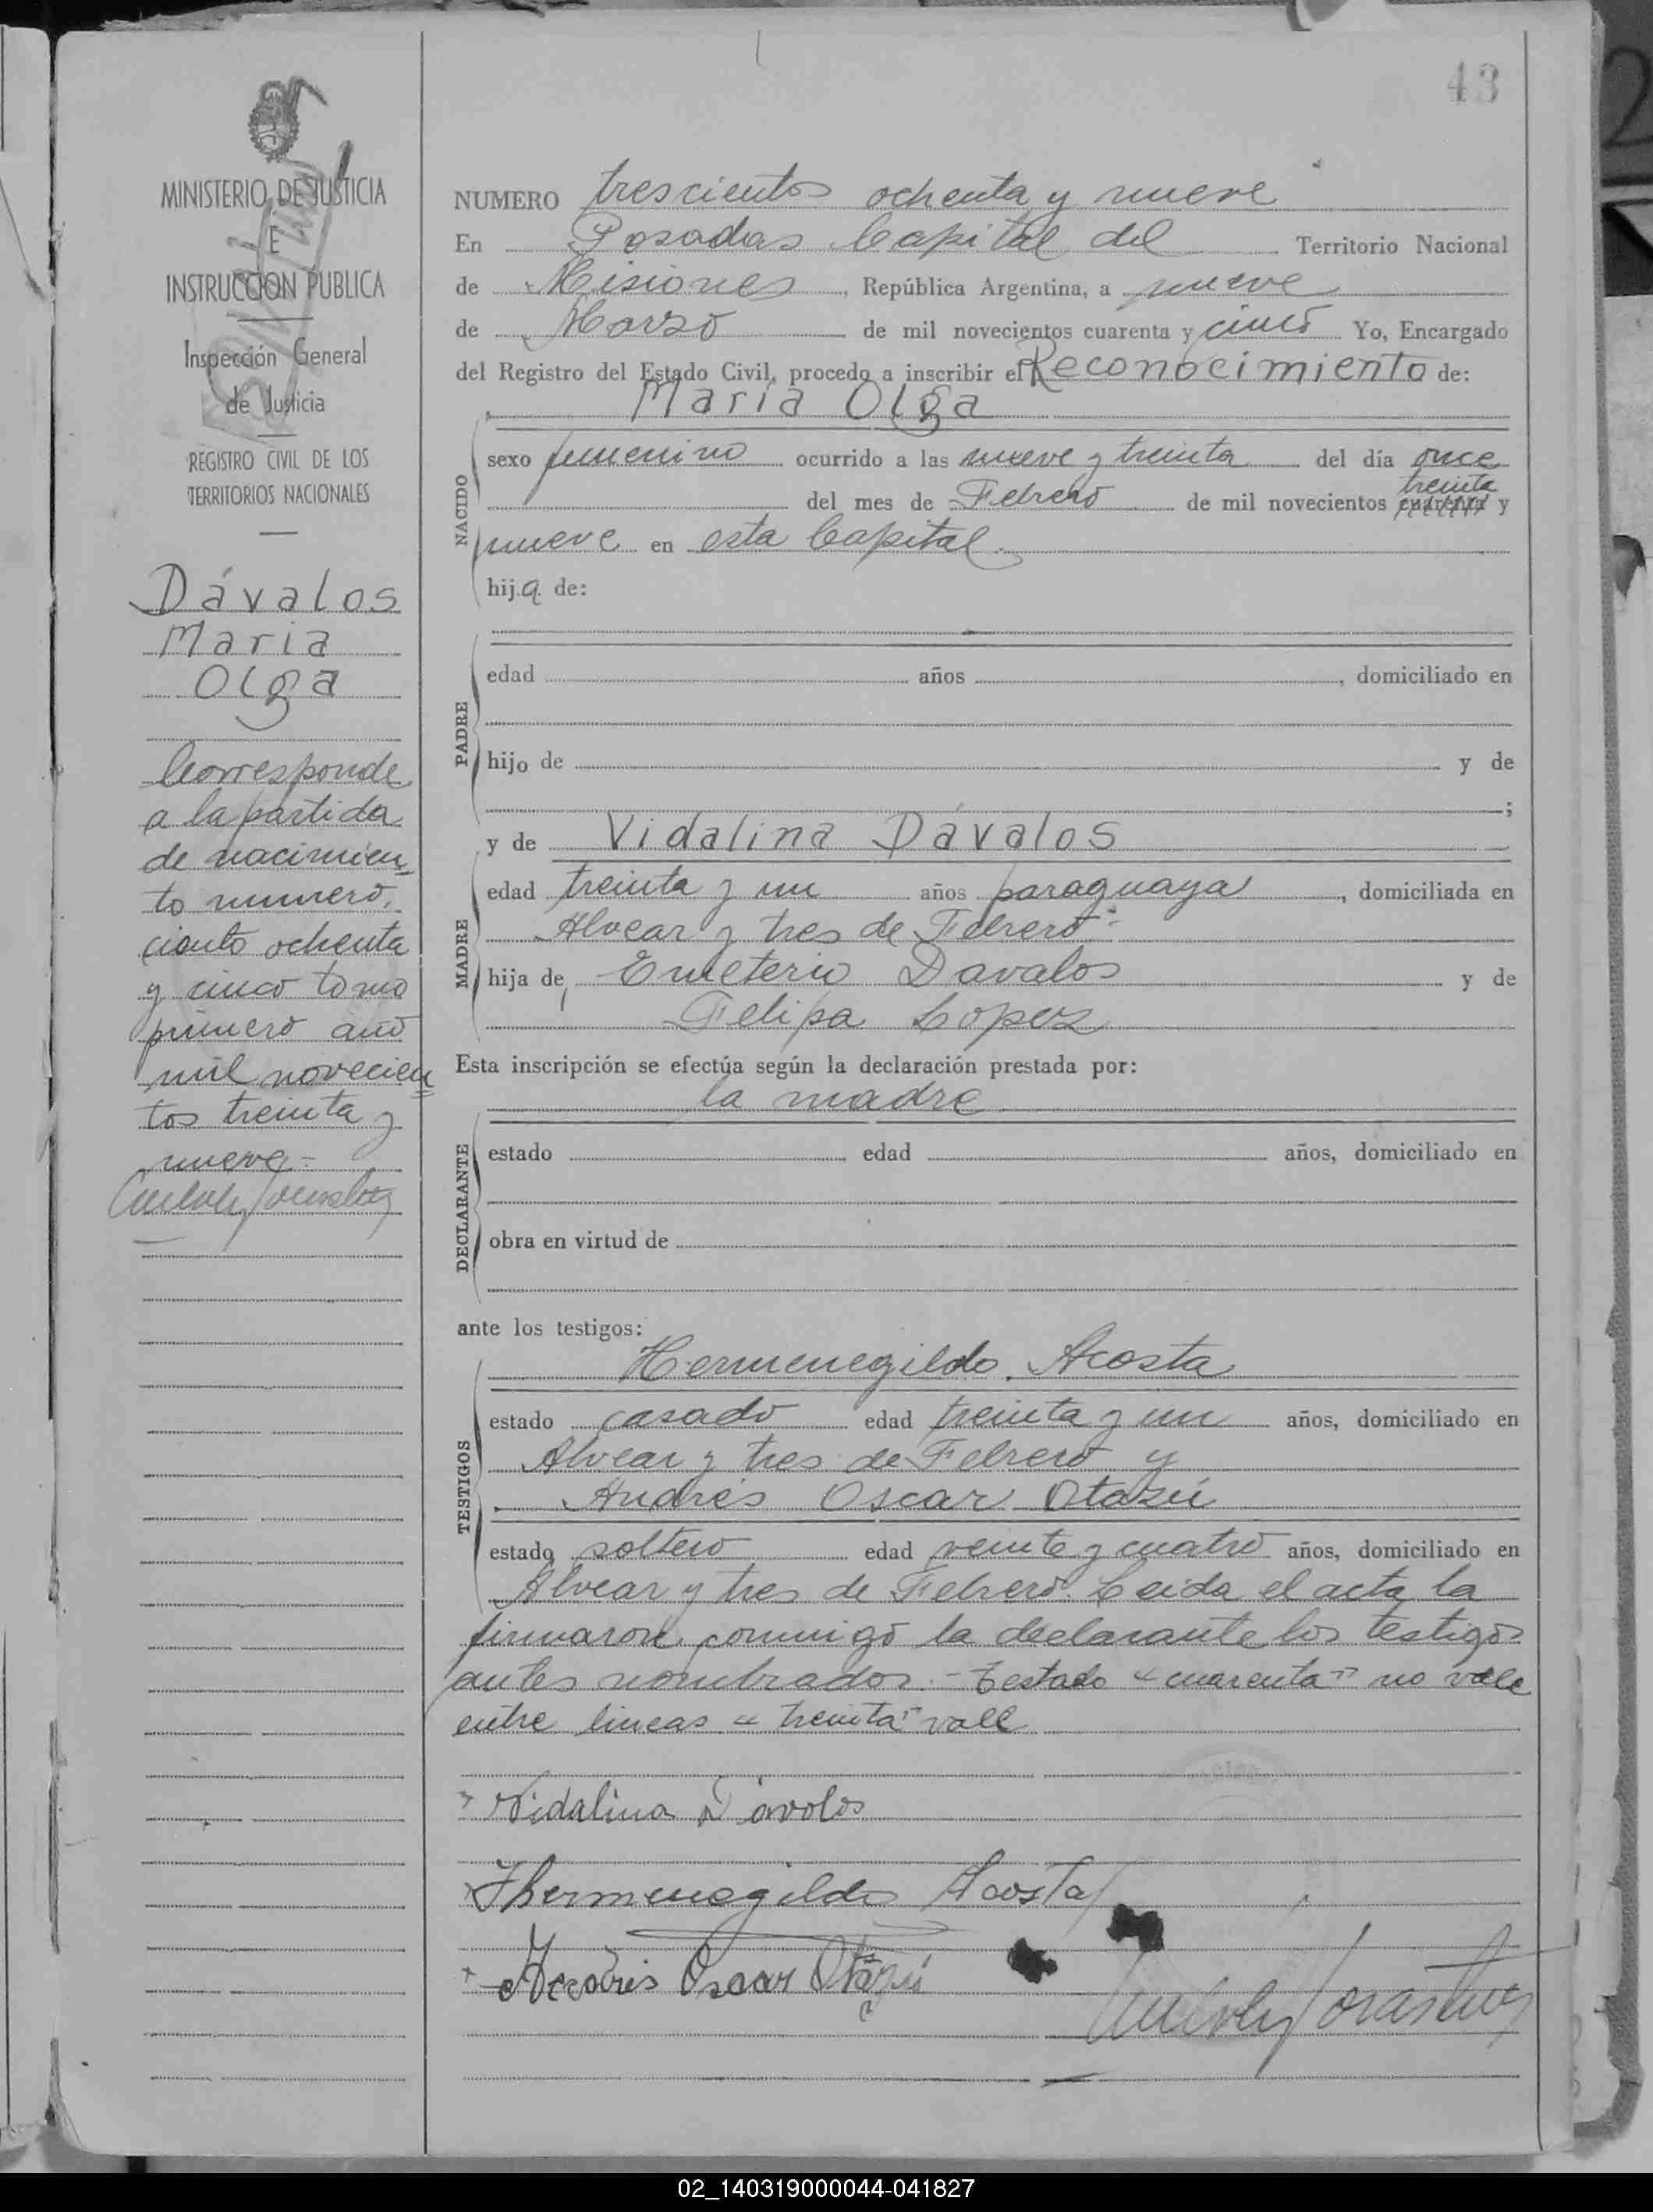 43
MINISTERIO DE JUSTICIA
E
INSTRUCCION PUBLICA
Inspección General
de Justicia
REGISTRO CIVIL DE LOS
TERRITORIOS NACIONALES
Dávalos
Maria
Olga
Corresponde
a la partida
de nacimien
to numero,
ciento ochenta
y cinco tomo
primero año
mil novecien
tos treinta y
nueve-
NUMERO trescientos ochenta y nueve
En Posadas Capital del Territorio Nacional
de Misiones, República Argentina, a nueve
de Marzo de mil novecientos cuarenta y cinco Yo, Encargado
del Registro del Estado Civil, procedo a inscribir el Reconocimiento de:
María Olga
NACIDO
sexo femenino ocurrido a las nueve y treinta del día once
treinta
del mes de Febrero de mil novecientos cuarenta y
nueve en esta Capital.
hija de:
PADRE
edad años , domiciliado en
hijo de y de
;
MADRE
y de Vidalina Dávalos
edad treinta y un años paraguaya, domiciliada en
Alvear y tres de Febrero-
hija de Emeterio Davalos y de
Felipa Lopez
Esta inscripción se efectúa según la declaración prestada por:
la madre
DECLARANTE
estado edad años, domiciliado en
obra en virtud de
ante los testigos:
TESTIGOS
Hermenegildo Acosta
estado casado edad treinta y un años, domiciliado en
Alvear y tres de Febrero y
Andrés Oscar Otazú
estado soltero edad veinte y cuatro años, domiciliado en
Alvear y tres de Febrero. Leida el acta la
firmaron conmigo la declarante los testigos
antes nombrados.- Testado "cuarenta" no vale
entre lineas "treinta" vale
Vidalina Dávolos
Hermenegildo Acosta
Andrés Oscar Otazú
02_140319000044-041827